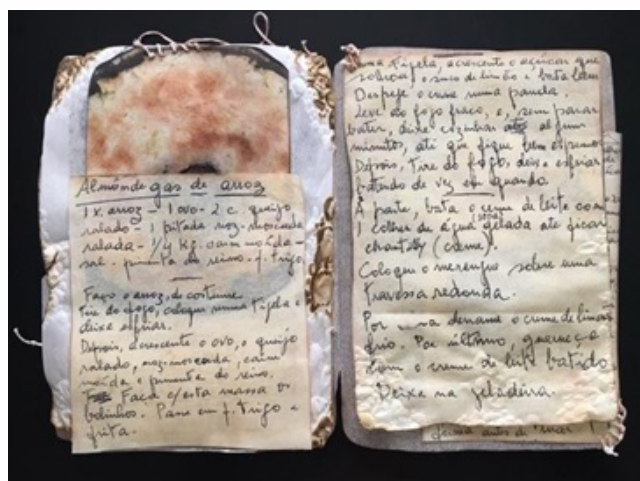 Almôndegas de arroz
1 x. arroz - 1 ovo - 2 c. queijo
ralado - 1 pitada noz-moscada
ralada - 1/4 kg. carne moída -
sal - pimenta do reino - f. trigo
Faça o arroz de costume
Tire do fogo, coloque numa tijela e
deixe esfriar.
Depois, acrescente o ovo, o queijo
ralado, noz-moscada, carne
moída e pimenta do reino.
Faça c/esta massa os
bolinhos. Passe em f. trigo e
frita.
uma tijela, acrescente o açúcar que
sobrou, o suco de limão e bata bem
Despeje o creme numa panela.
Leve ao fogo fraco, e, sem parar
bater, deixe cozinhar até alguns
minutos, até que fique bem espumoso
Depois, tire do fogo, deixe esfriar
batendo de vez em quando.
À parte, bata o creme de leite com
1 colher de (sopa) água gelada até ficar
chantilly (creme).
Coloque o merengue sobre uma
travessa redonda.
Por cima derrame o creme de limão
frio. Por último, guarneça
com o creme de leite batido
Deixe na geladeira.
antes de